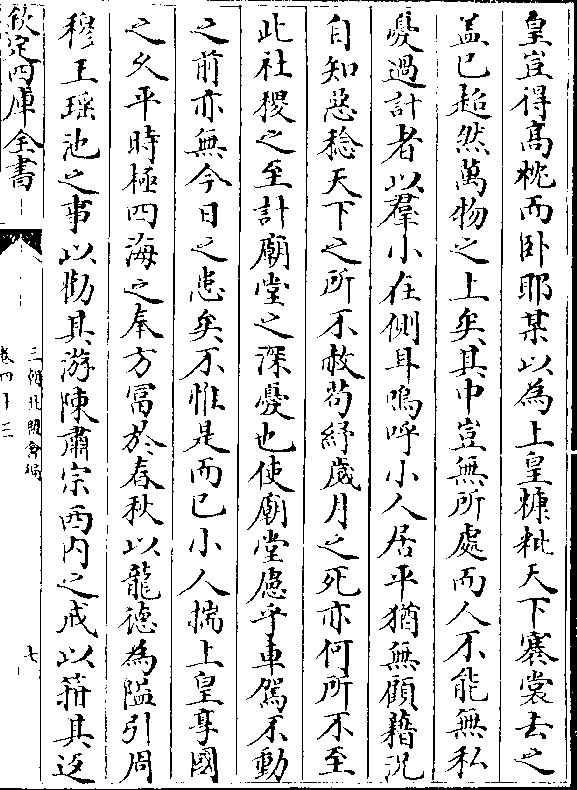 皇豈得髙枕而卧耶某以為上皇糠粃天下褰裳去之
盖已超然萬物之上矣其中豈無所處而人不能無私
憂過計者以羣小在側耳嗚呼小人居平猶無顧藉況
自知惡稔天下之所不赦苟紓歲月之死亦何所不至
此社稷之至計廟堂之深憂也使廟堂慮乎車駕不動
之前亦無今日之患矣不惟是而已小人揣上皇享國
之久平時極四海之奉方富於春秋以龍徳為隘引周
穆王瑶池之事以勸其游陳肅宗西内之戒以箝其返
欽定四庫全書
三朝北盟會編
卷四十三
七